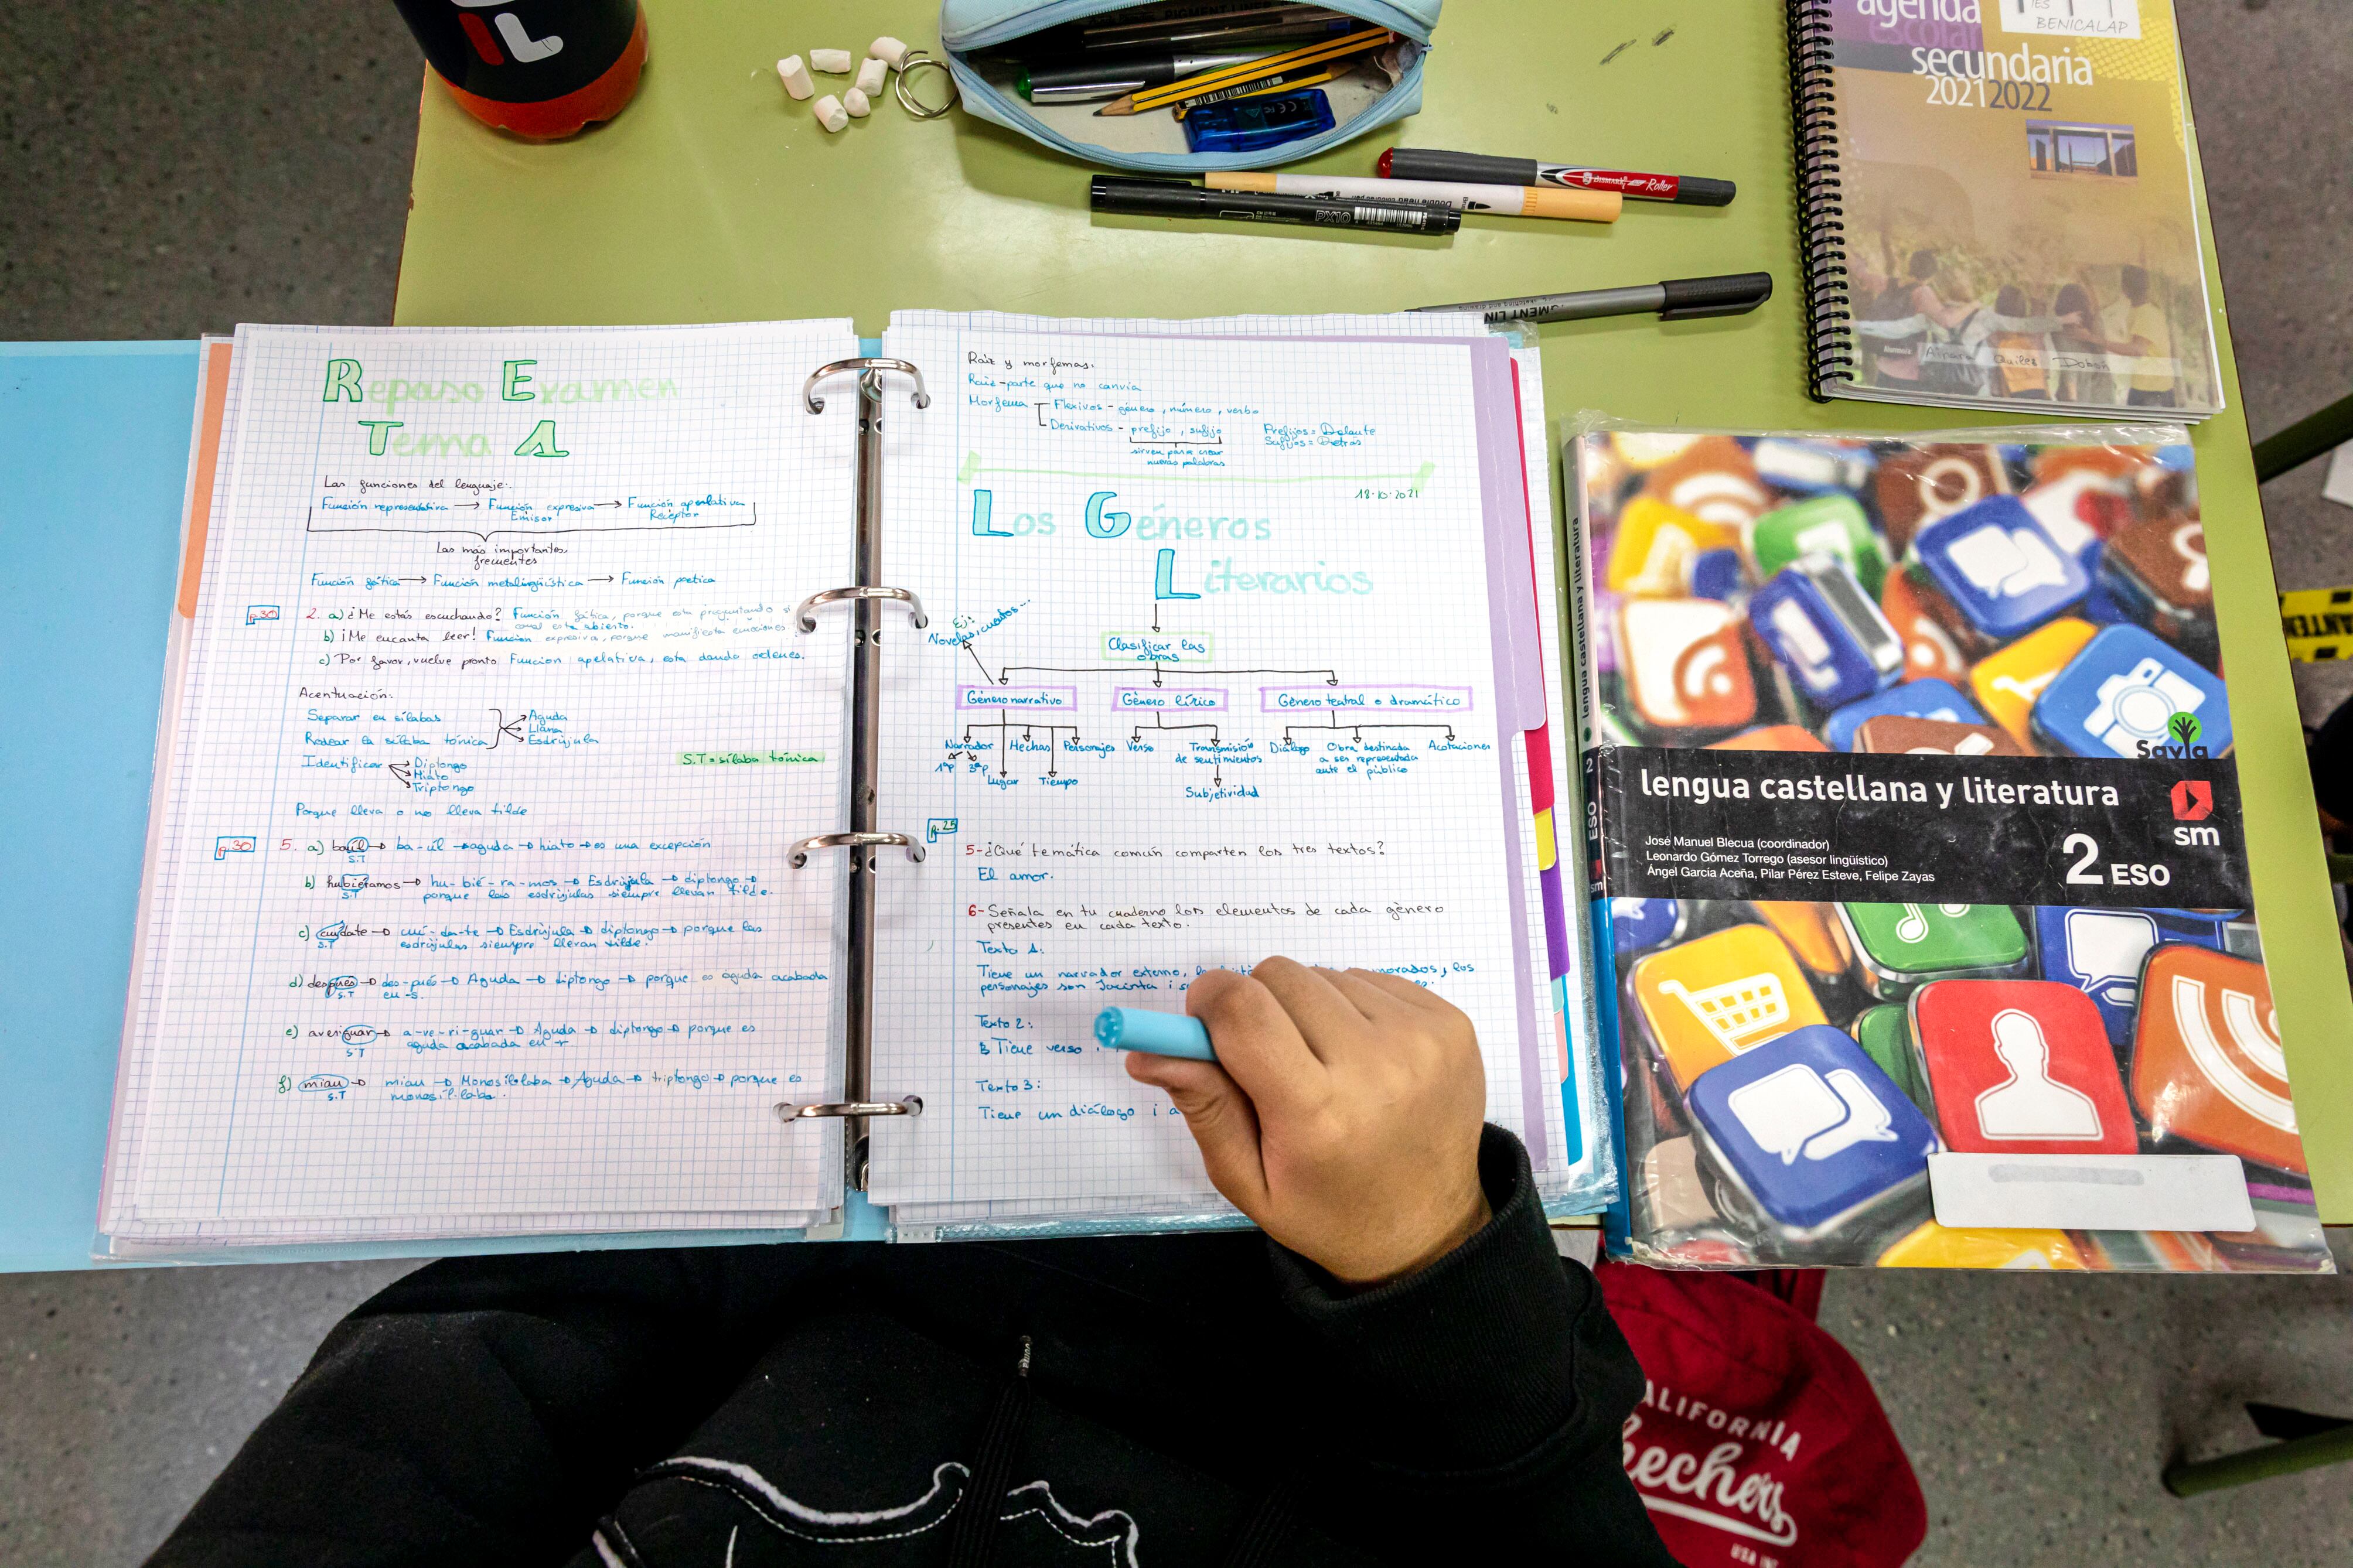 IL
PIGMENT LINER
PX10
DISMARK Roller
Double head coloured pen
GMENT LIN
agenda
escolar
IES
BENICALAP
secundaria
20212022
Ainara Quiles Dobón
Repaso Examen
Tema 1
Las funciones del lenguaje:
Función representativa → Función expresiva → Función apelativa
Emisor Receptor
Las más importantes,
frecuentes
Función fática → Función metalingüística → Función poetica
p.30
2. a) ¿Me estás escuchando? Función fática, porque esta preguntando si
canal esta abierto.
b) ¡Me encanta leer! Función expresiva, porque manifiesta emociones.
c) Por favor, vuelve pronto Funcion apelativa, esta dando ordenes.
Acentuación:
Separar en sílabas
Rodear la sílaba tónica
Aguda
Llana
Esdrújula
Identificar
Diptongo
Hiato
Triptongo
S.T = sílaba tónica
Porque lleva o no lleva tilde
p.30
5. a) baúl → ba-úl → aguda → hiato → es una excepción
S.T
b) hubiéramos → hu-bié-ra-mos → Esdrújula → diptongo →
S.T porque las esdrújulas siempre llevan tilde.
c) cuídate → cuí-da-te → Esdrújula → diptongo → porque las
S.T esdrújulas siempre llevan tilde.
d) después → des-pués → Aguda → diptongo → porque es aguda acabada
S.T en -s.
e) averiguar → a-ve-ri-guar → Aguda → diptongo → porque es
S.T aguda acabada en -r
f) miau → miau → Monosílaba → Aguda → triptongo → porque es
S.T monosílaba.
Raiz y morfemas:
Raiz - parte que no canvia
Morfema Flexivos - género, número, verbo
Derivativos - prefijo, sufijo
sirven para crear
nuevas palabras
Prefijos = Delante
Sufijos = Detrás
18·10·2021
Los Géneros
Literarios
Ej:
Novelas, cuentos...
Clasificar las
obras
Género narrativo Género lírico Género teatral o dramático
Narrador Hechos Personajes Verso Transmisión
de sentimientos
Diálogo Obra destinada
a ser representada
ante el público
Acotaciones
1ªp 3ªp Lugar Tiempo
Subjetividad
p.25
5- ¿Qué temática común comparten los tres textos?
El amor.
6- Señala en tu cuaderno los elementos de cada género
presentes en cada texto.
Texto 1:
Tiene un narrador externo, los
personajes son Jacinta i
Texto 2:
Tiene verso
Texto 3:
Tiene un diálogo i a
lengua castellana y literatura
2 ESO
sm
Savia
lengua castellana y literatura
sm
José Manuel Blecua (coordinador)
Leonardo Gómez Torrego (asesor lingüístico)
Ángel García Aceña, Pilar Pérez Esteve, Felipe Zayas
2 ESO
ALIFORNIA
kechers
USA INC